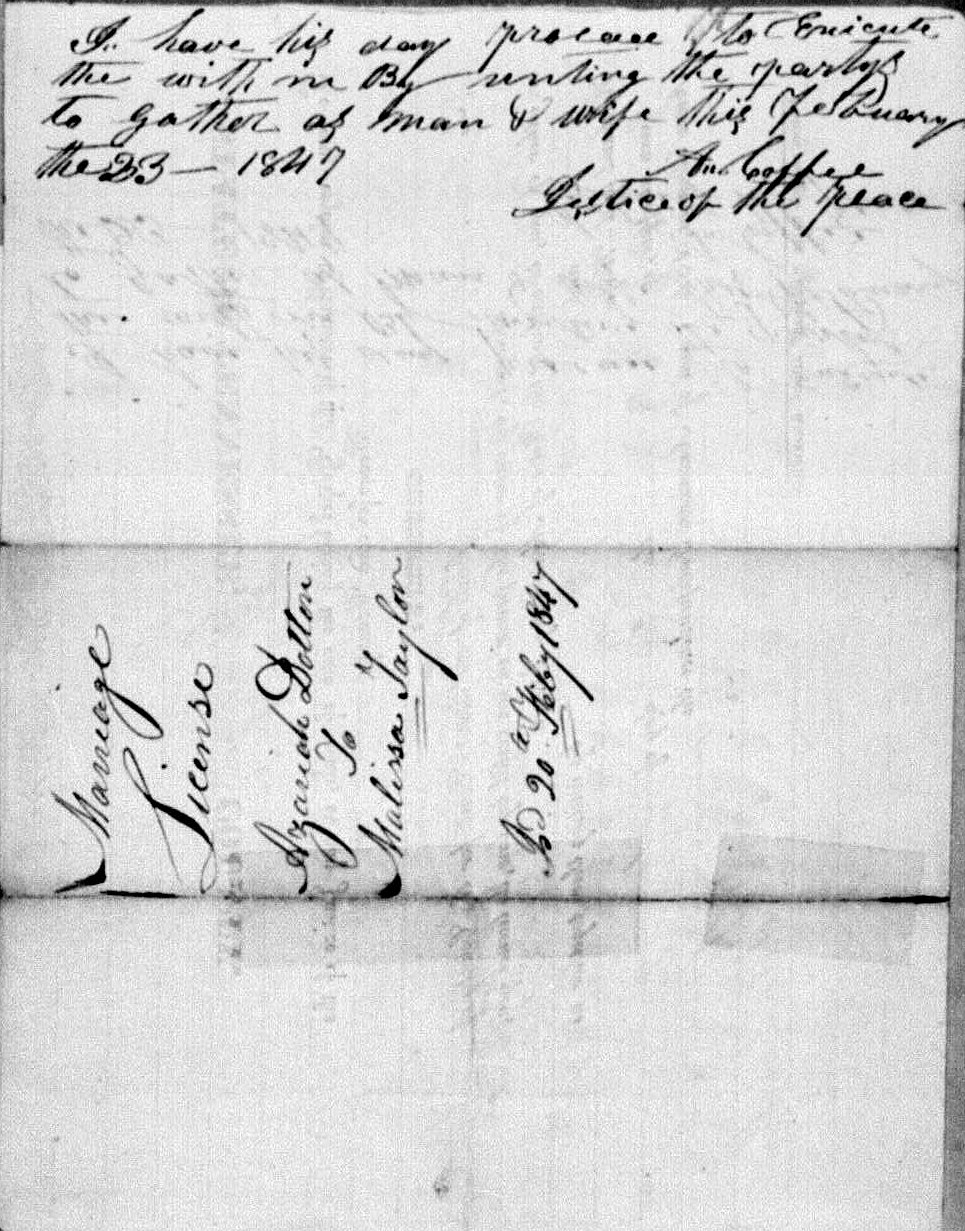 I have his day proceae to Exicute
the with in By uniting the partys
to gather as man & wife this February
the 23 — 1847
An. Coffee
Jestice of the peace
Marriage
License
Azariah Dotton
To
Malissa Taylor
20th Feby 1847